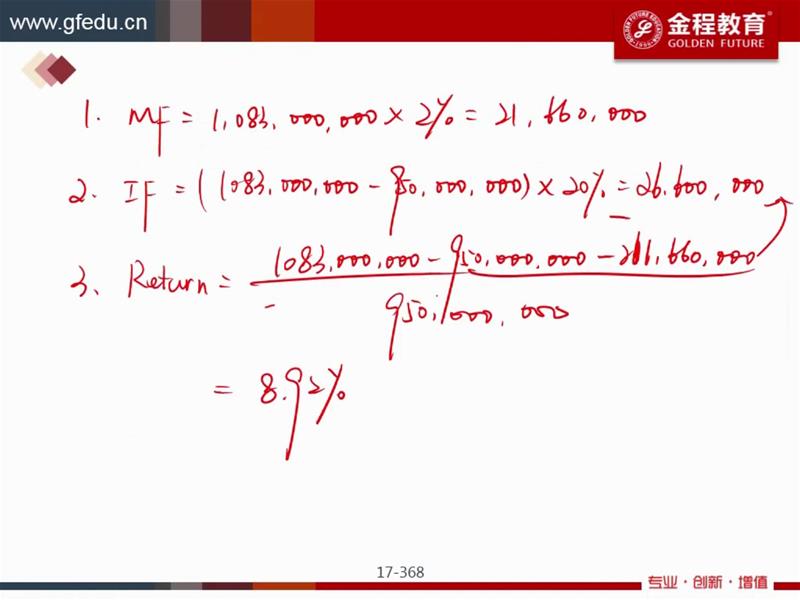 www.gfedu.cn
金程教育
GOLDEN FUTURE
1. MF = 1,083,000,000 × 2% = 21,660,000
2. IF = (1083,000,000 - 950,000,000) × 20% = 26.600,000
3、 Return = 1083,000,000 - 950,000,000 - 21,660,000
950,000,000
= 8.92%
17-368
专业·创新·增值